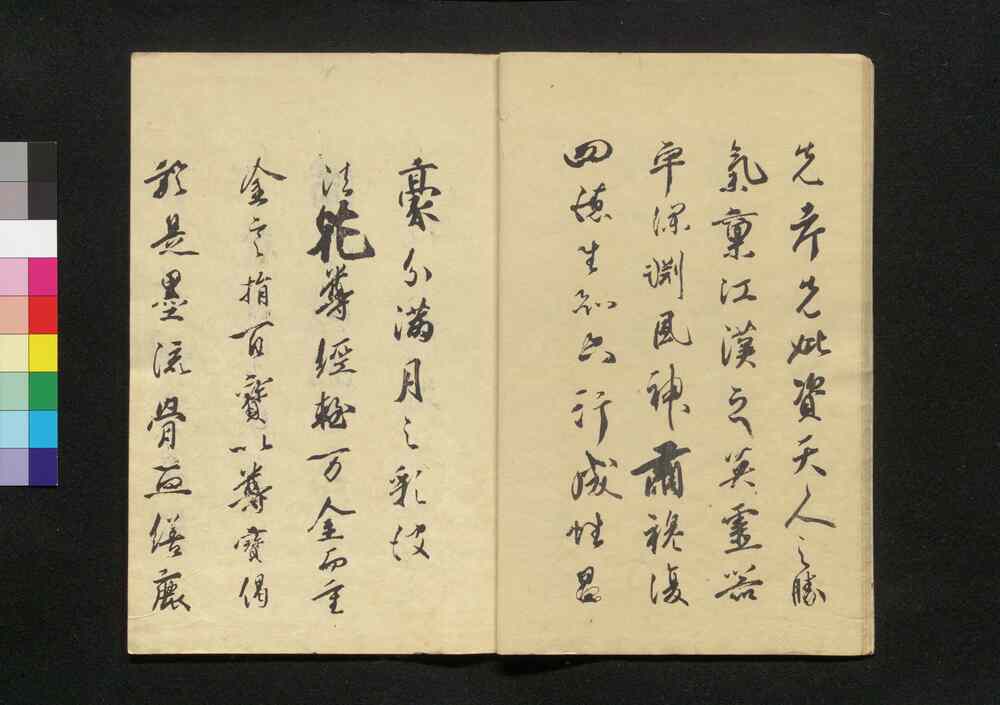 先考先妣資天人之勝
氣稟江漢之英靈器
宇深淵風神肅穆復
四德生知六行成性
豪分滿月之彩文
法花尊經軸万金而重
金之指百寶以尊寶偈
於是墨流骨血